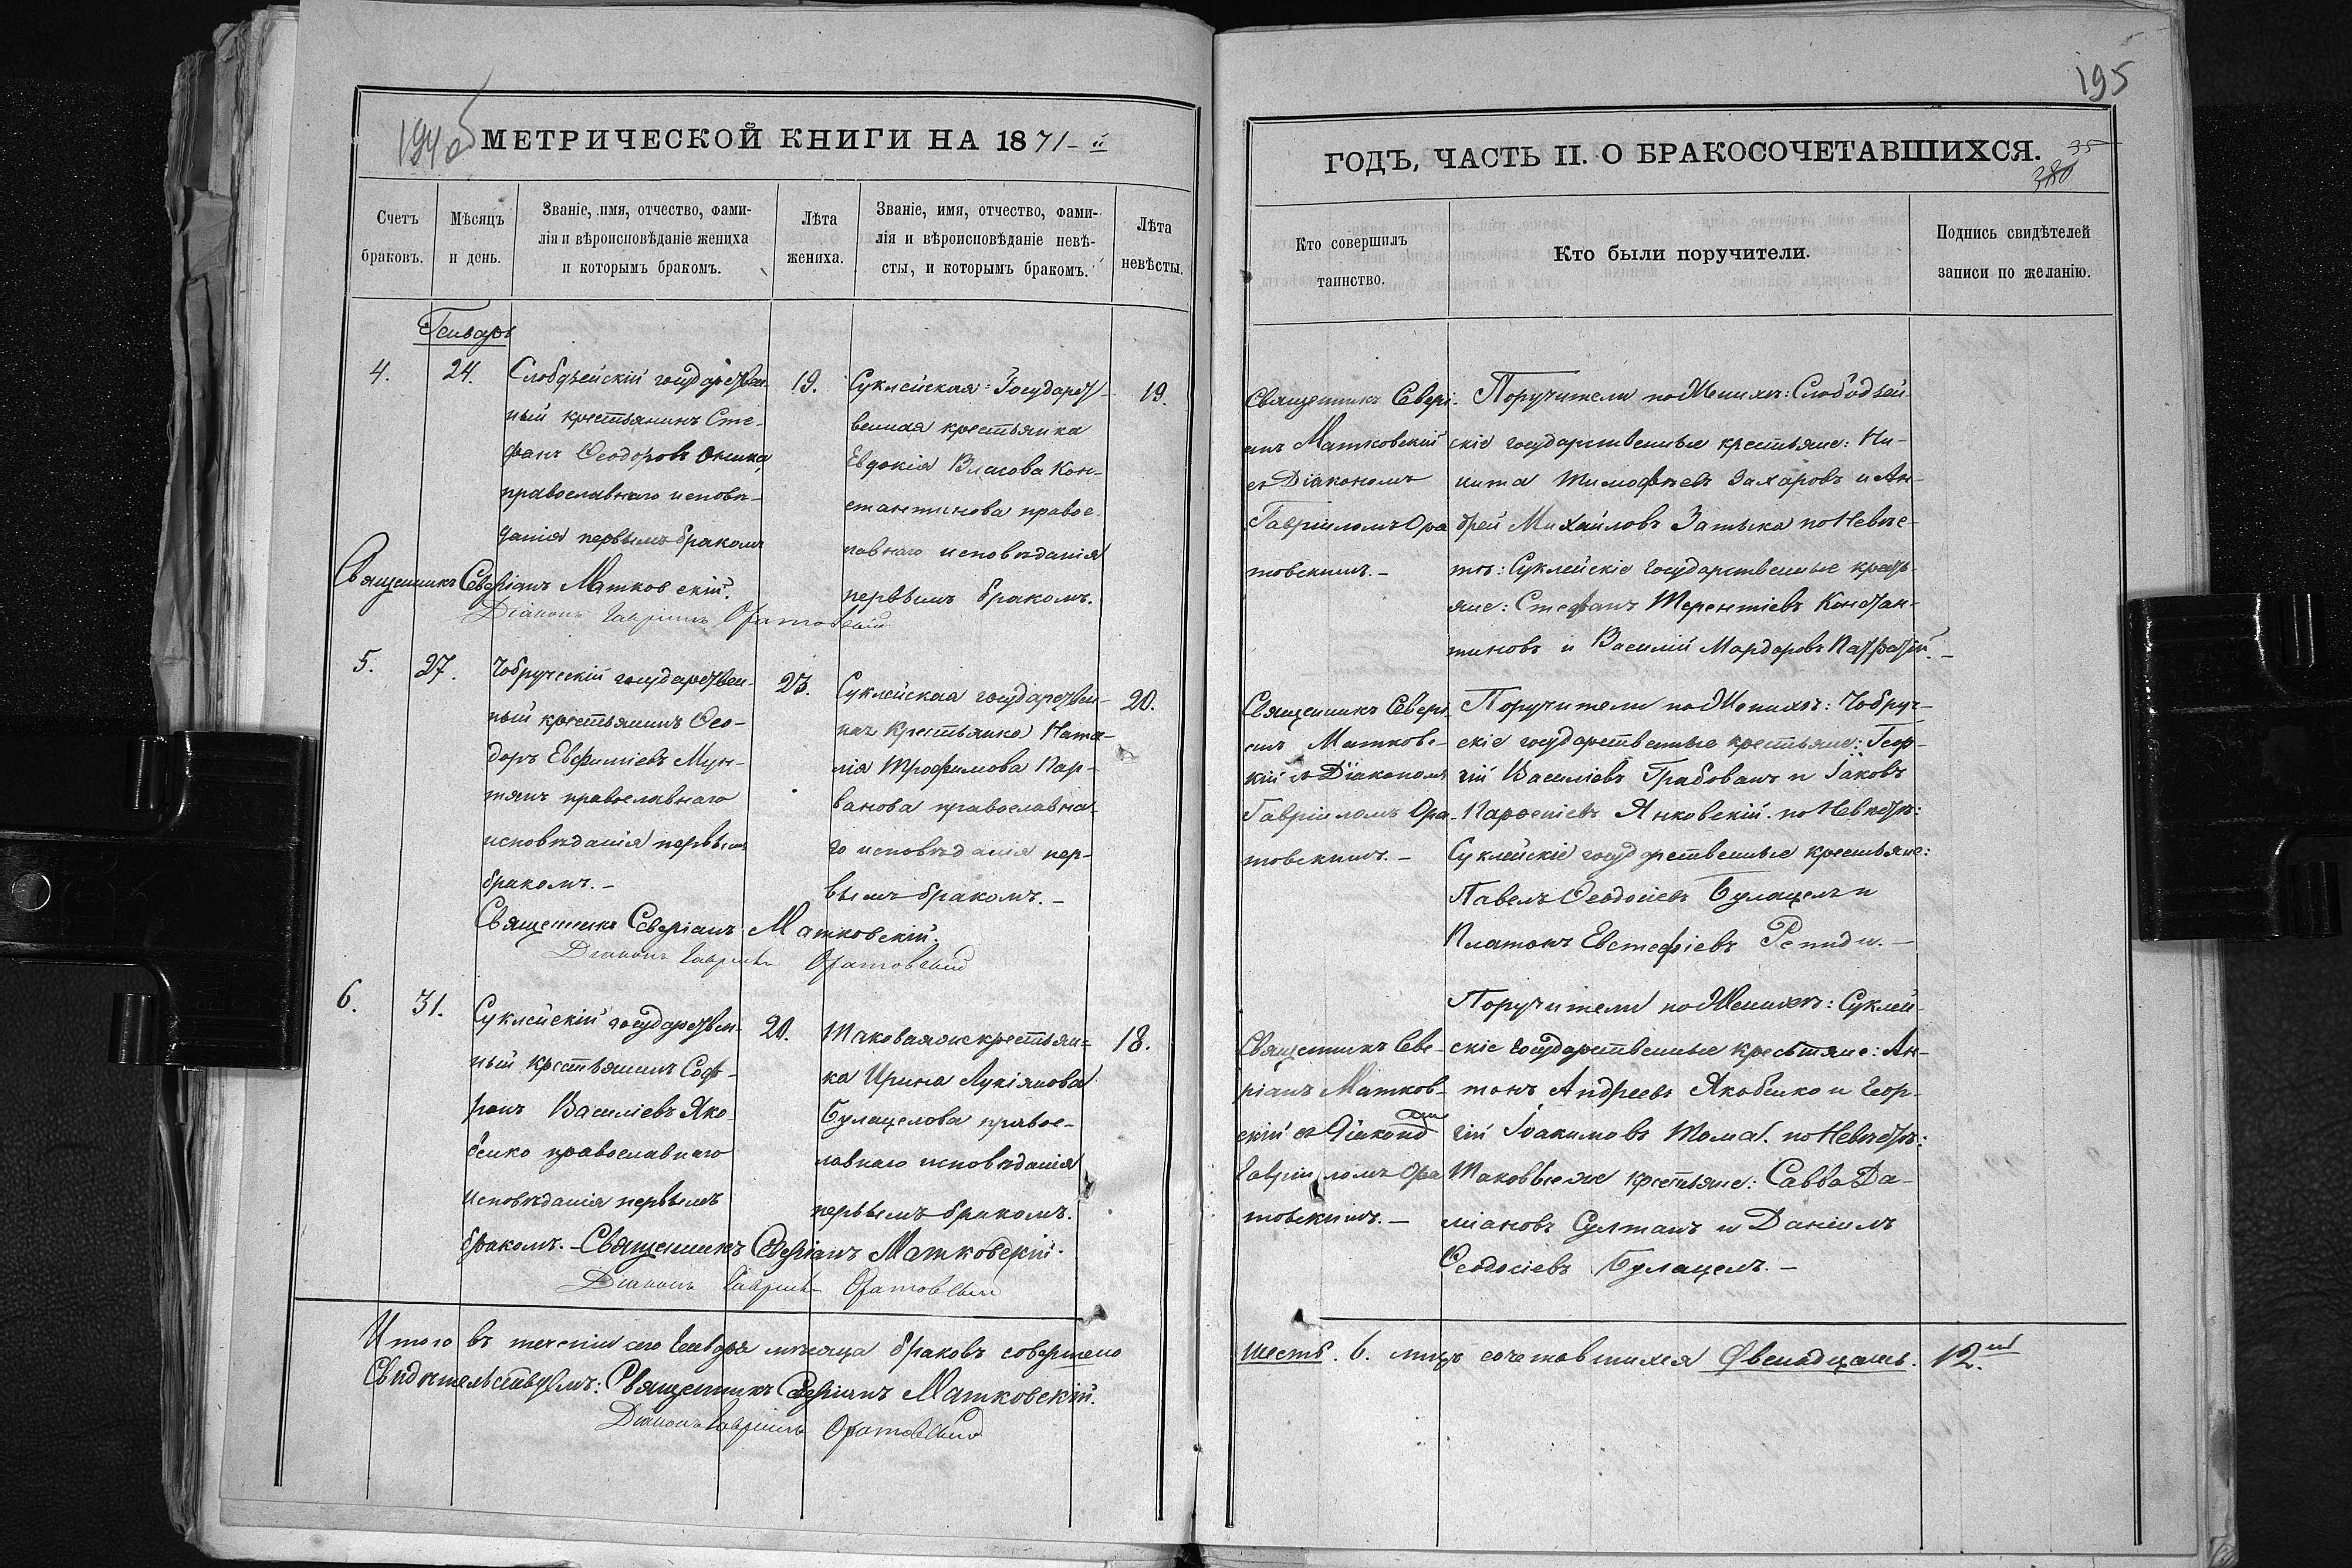 194 об
МЕТРИЧЕСКОЙ КНИГИ НА 1871-й
Счетъ браковъ.
Мѣсяцъ и день.
Званіе, имя, отчество, фами-
лія и вѣроисповѣданіе жениха
и которымъ бракомъ.
Лѣта жениха.
Званіе, имя, отчество, фами-
лія и вѣроисповѣданіе невѣ-
сты, и которымъ бракомъ.
Лѣта невѣсты.
Генварь
4.
24.
Слободзейскій государствен-
ный крестьянинъ Сте-
фанъ Ѳеодоровъ Оника,
православнаго исповѣ-
данія первымъ бракомъ
19.
Суклейская: Государст-
венная крестьянка
Евдокія Власова Кон-
стантинова правос-
лавнаго исповѣданія
первымъ бракомъ.
19.
Священникъ Северіанъ Матковскій.
Діаконъ Гавріилъ Оратовскій
5.
27.
Чобручскій государствен-
ный крестьянинъ Ѳео-
доръ Евфиміевъ Мун-
тянъ православнаго
исповѣданія первымъ
бракомъ.-
23.
Суклейская государствен-
ная крестьянка Ната-
лія Трофимова Кар-
ванова православна-
го исповѣданія пер-
вымъ бракомъ.-
20.
Священникъ Северіанъ Матковскій.
Діаконъ Гавріилъ Оратовскій
6.
31.
Суклейскій государствен-
ный крестьянинъ Соф-
ронъ Василіевъ Яко-
бенко православнаго
исповѣданія первымъ
бракомъ.-
20.
Таковаяже крестьян-
ка Ирина Лукіянова
Булацелова правос-
лавнаго исповѣданія
первымъ бракомъ.
18.
Священникъ Северіанъ Матковскій.
Діаконъ Гавріилъ Оратовскій
Итого въ теченіи сего Генваря мѣсяца браковъ совершено
Свидѣтельствуемъ: Священникъ Северіанъ Матковскій.
Діаконъ Гавріилъ Оратовскій
195
ГОДЪ, ЧАСТЬ II. О БРАКОСОЧЕТАВШИХСЯ.
35
380
Кто совершилъ
таинство.
Кто были поручители.
Подпись свидѣтелей
записи по желанію.
Священникъ Севері-
анъ Матковскій
съ Діакономъ
Гавріиломъ Ора
товскимъ.-
Поручители по Женихѣ: Слободзей
скіе государственные крестьяне: Ни-
кита Тимофѣевъ Захаровъ и Ан-
дрей Михайловъ Затыка по Невѣс-
тѣ: Суклейскіе государственные кресть-
яне: Стефанъ Терентіевъ Констан-
тиновъ и Василій Мардаровъ
Священникъ Севері-
анъ Матковс-
кій съ Діакономъ
Гавріиломъ Ора-
товскимъ.-
Поручители по Женихѣ: Чобруч-
скіе государственные крестьяне: Геор-
гій Василіевъ Грабованъ и Іаковъ
Парѳеніевъ Янковскій. по Невѣстѣ:
Суклейскіе государственные крестьяне:
Павелъ Ѳеодосіевъ Булацелъ и
Платонъ Евстафіевъ Репида.-
Священникъ Севе-
ріанъ Матков-
скій съ Діакономъ
Гавріиломъ Ора
товскимъ.-
Поручители по Женихѣ: Суклей-
скіе государственные крестьяне: Ан-
тонъ Андреевъ Якобенко и Геор-
гій Іоакимовъ Тома. по Невѣстѣ:
Таковыеже крестьяне: Савва Да-
міановъ Султанъ и Даніилъ
Ѳеодосіевъ Булацелъ.-
Шесть. 6. лицъ сочетавшихся двенадцать. 12.